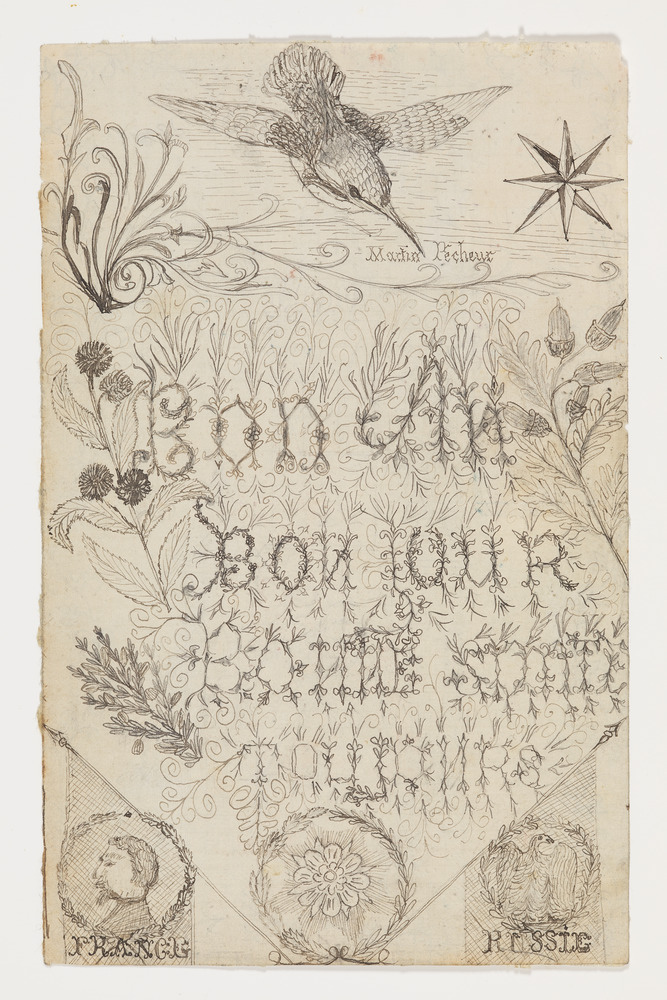 Martin Pêcheur
Bon An
BONJOUR
TOUJOURS
FRANCE
RUSSIE